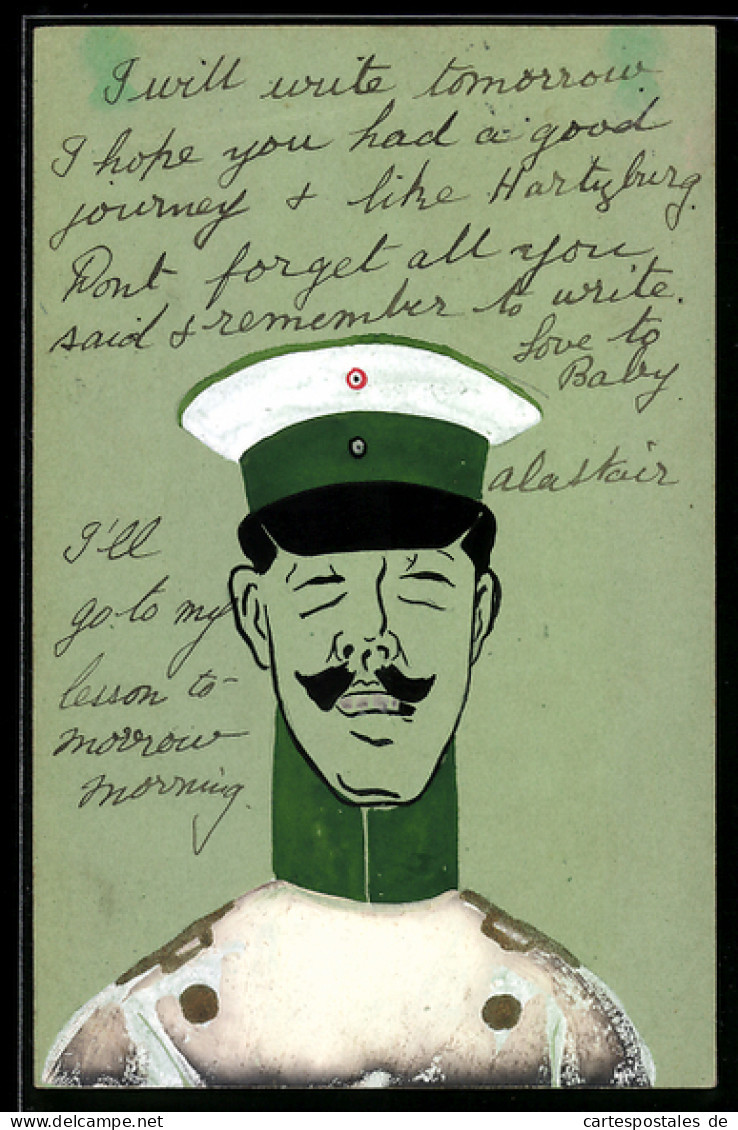 I will write tomorrow
I hope you had a good
journey & like Hartzburg.
Dont forget all you
said & remember to write.
Love to
Baby.
alastair
I'll
go to my
lesson to-
morrow
morning.
delcampe.net
cartespostales de